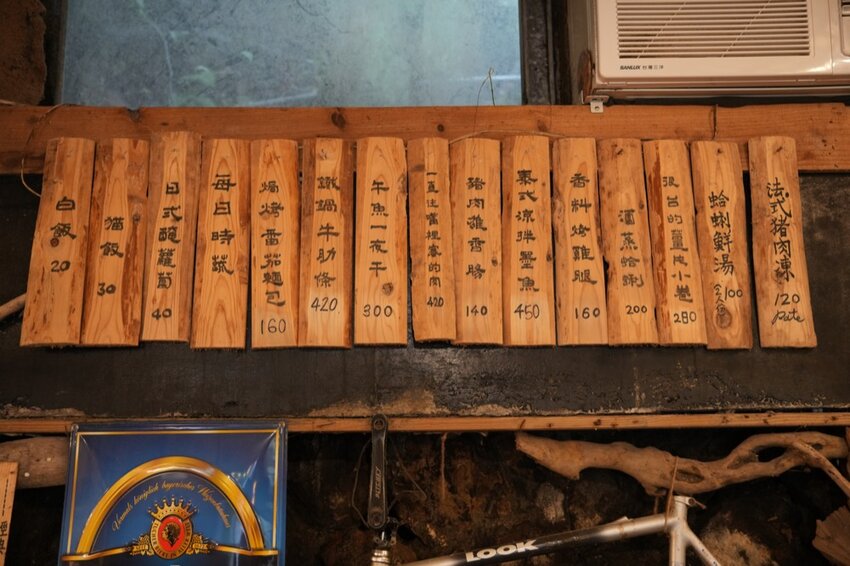 SANLUX 台灣三洋
白飯 20
猫飯 30
日式醃蘿蔔 40
每日時蔬
焗烤番茄麵包 160
鐵鍋牛肋條 420
午魚一夜干 300
一直住當裡塞的肉 420
豬肉雜香腸 140
泰式涼拌墨魚 450
香料烤雞腿 160
酒蒸蛤蜊 200
小卷 280
蛤蜊鮮湯 100
法式猪肉凍 120 Pate
LOOK